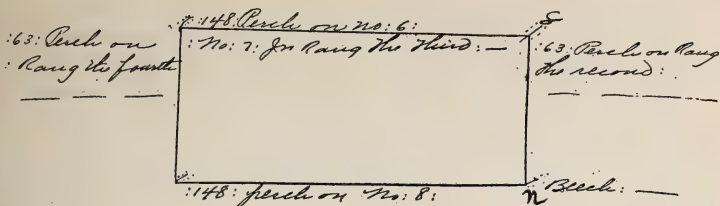 :148: Perch on no: 6:
S
:63: Perch on
: Rang the fourth
: No: 7: In Rang the Third: —
:63: Perch on Rang
the second:
:148: perch on No: 8:
n
Beech: —